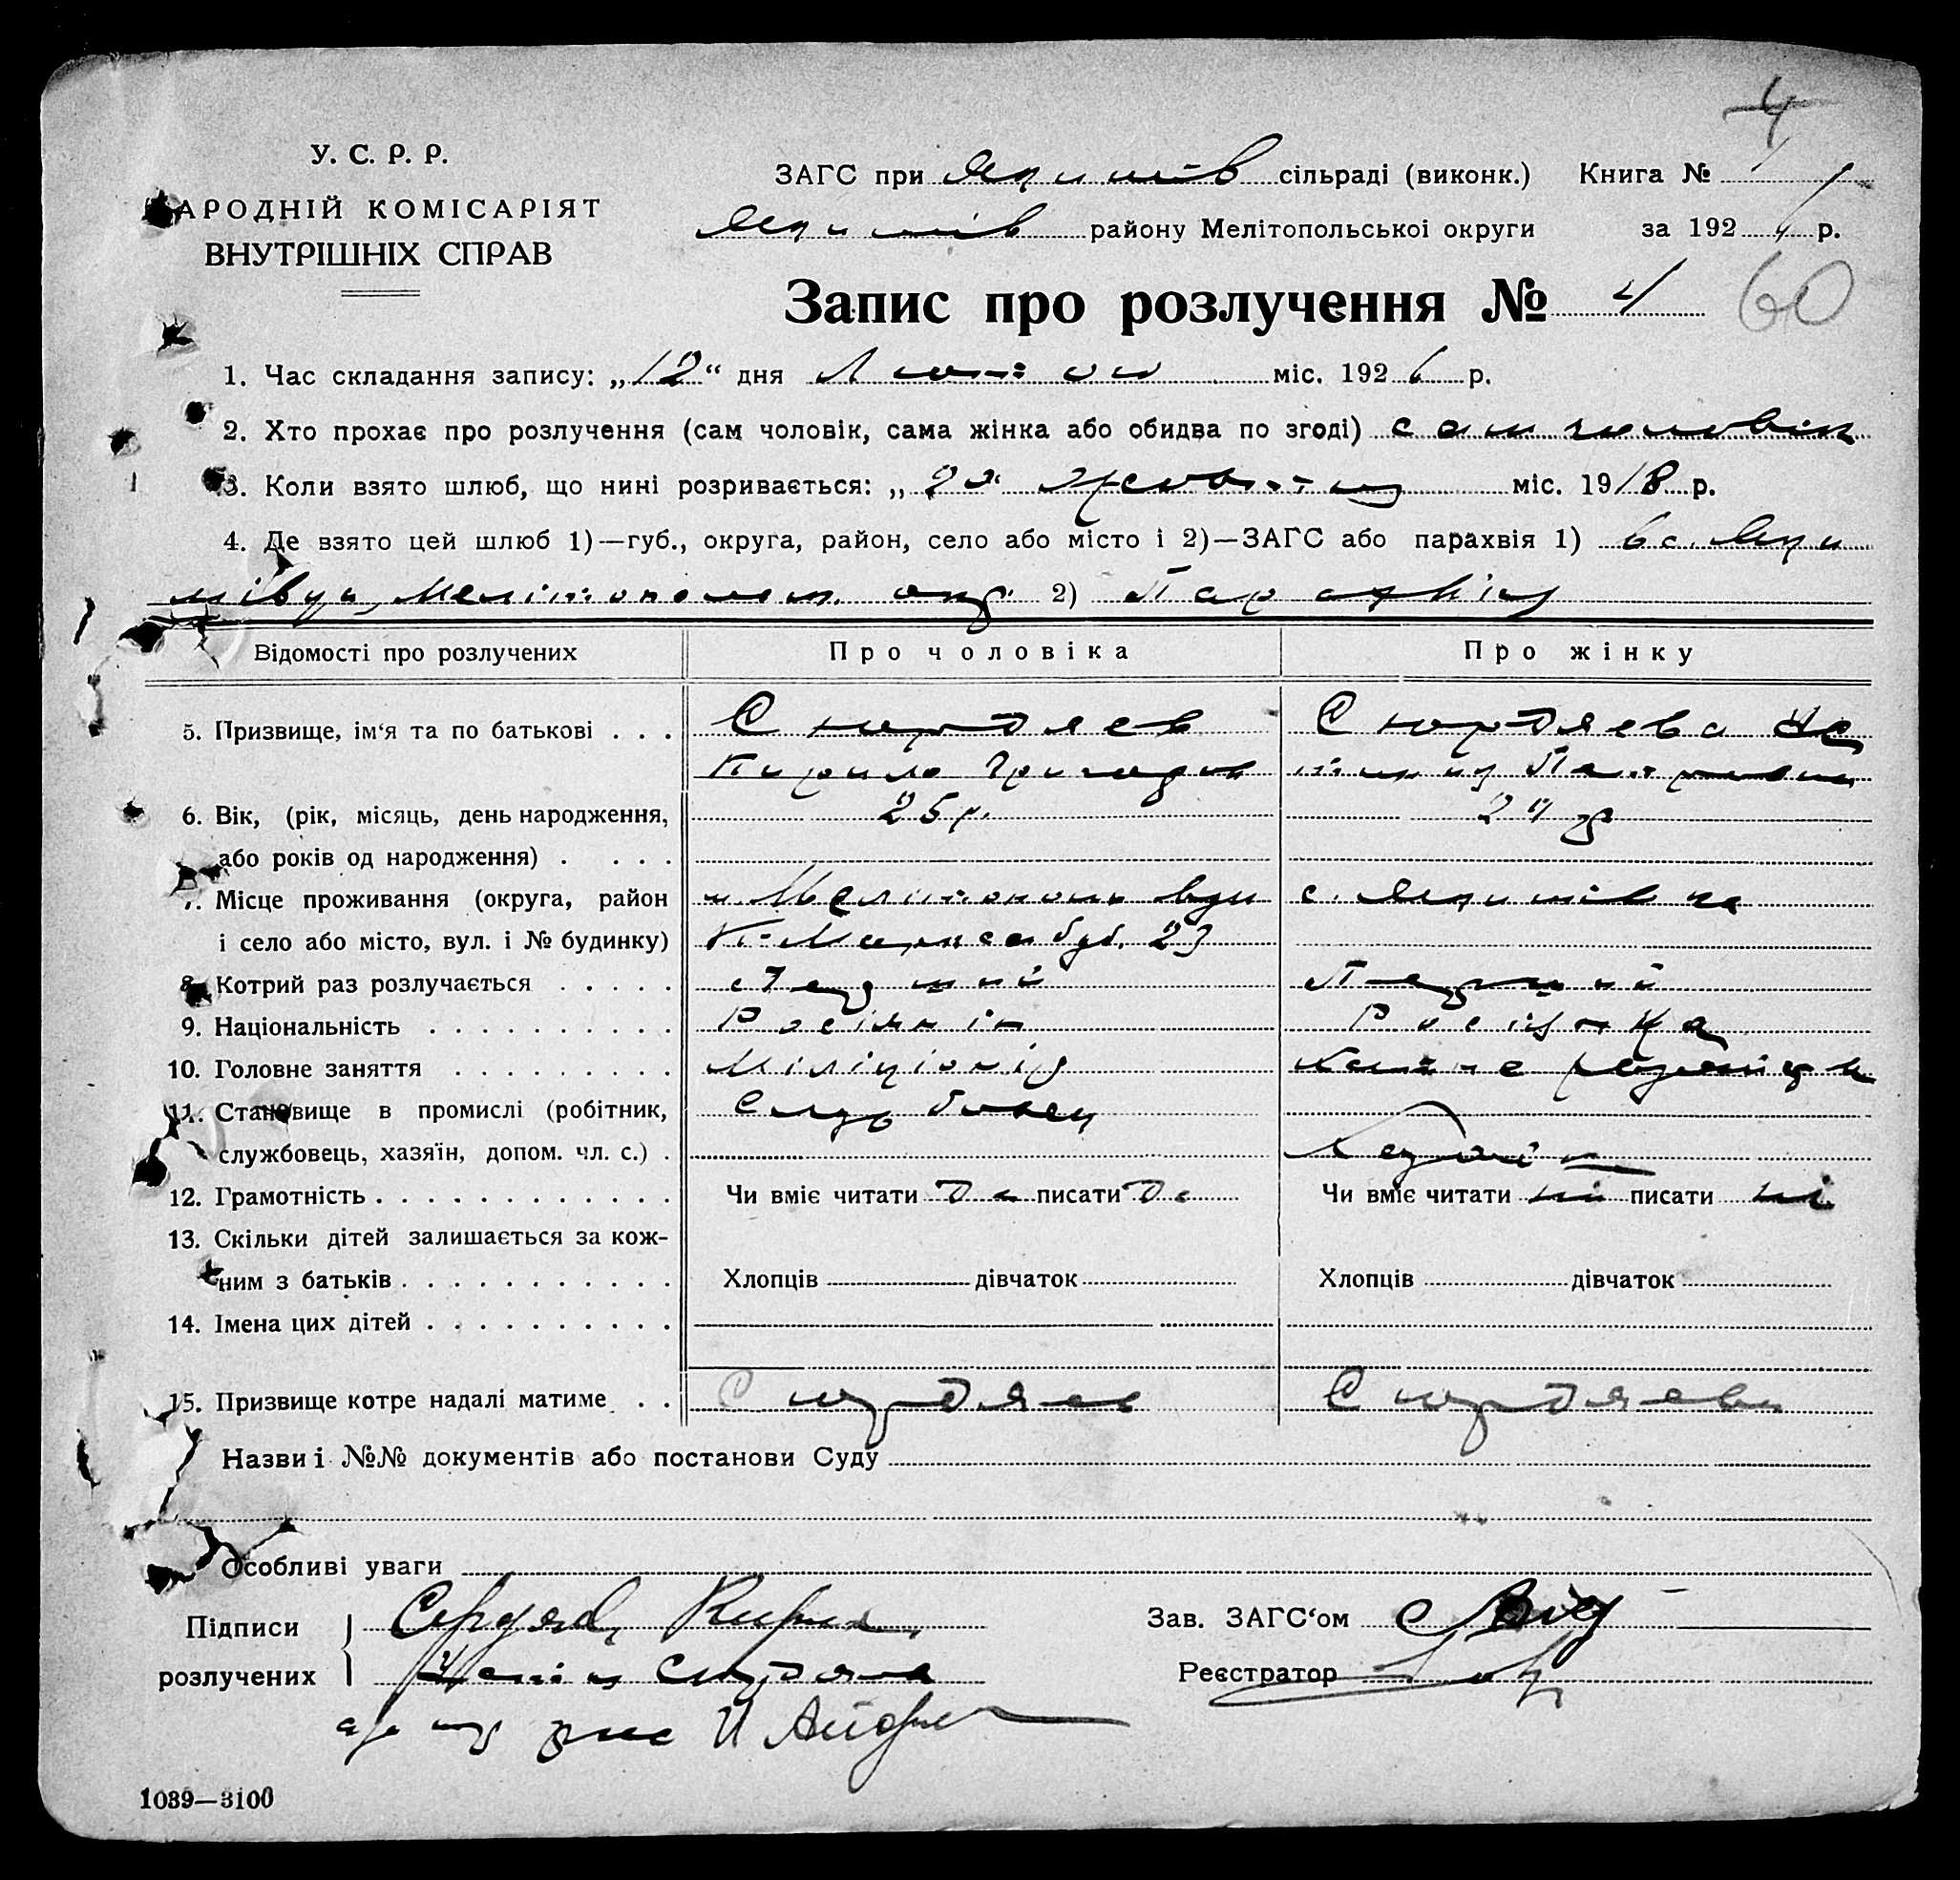 4
У. С. Р. Р.
НАРОДНІЙ КОМІСАРІЯТ
ВНУТРІШНІХ СПРАВ
ЗАГС при Якимів сільраді (виконк.) Книга №
Якимів району Мелітопольскоі округи за 192 р.
Запис про розлучення № 4 60
1. Час складання запису: „12“ дня Лютого міс. 1926 р.
2. Хто прохає про розлучення (сам чоловік, сама жінка або обидва по згоді) сам чоловік
3. Коли взято шлюб, що нині розривається: „ Жовтня міс. 1918 р.
4. Де взято цей шлюб 1)—губ., округа, район, село або місто і 2)—ЗАГС або парахвія 1) в с. Яки
мівци, Мелітопольск. окр. 2) Парахвія
Відомості про розлучених Про чоловіка Про жінку
5. Призвище, ім‘я та по батькові . . . Сюрдяев Сюрдяева
Кирило Григоров
6. Вік, (рік, місяць, день народження, 25 р. 24 р
або років од народження) . . . .
7. Місце проживання (округа, район м. Мелітополь вул с. Якимівка
і село або місто, вул. і № будинку) К-Маркса буд. 23
8. Котрий раз розлучається . . . . . Перший Перший
9. Національність . . . . . . . . . . Росіянін Росіянка
10. Головне заняття . . . . . . . . . Міліціонір
11. Становище в промислі (робітник, Службовець
службовець, хазяїн, допом. чл. с.) .
12. Грамотність . . . . . . . . . . . . Чи вміє читати Да писати Да Чи вміє читати ні писати ні
13. Скільки дітей залишається за кож-
ним з батьків . . . . . . . . . . . Хлопців дівчаток Хлопців дівчаток
14. Імена цих дітей . . . . . . . . . .
15. Призвище котре надалі матиме . . Сюрдяев Сюрдяева
Назви і №№ документів або постанови Суду
Особливі уваги
Підписи Зав. ЗАГС‘ом
розлучених Реєстратор
1039—3100